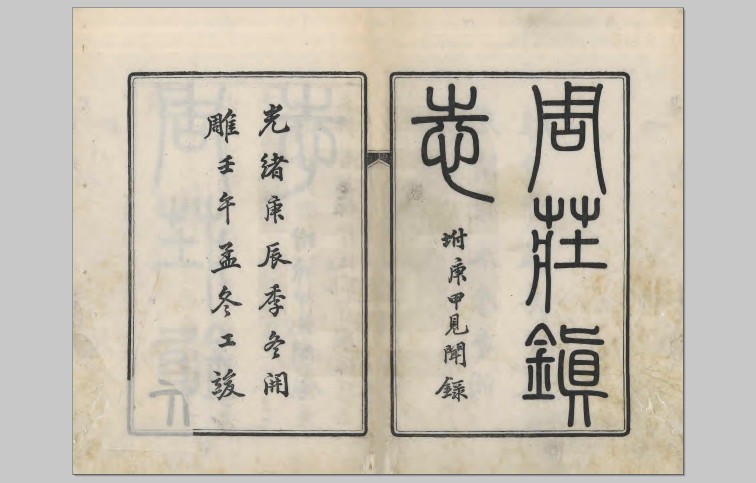 周莊鎭
志
坿庚甲見聞錄
光緒庚辰季冬開
雕壬午孟冬工竣